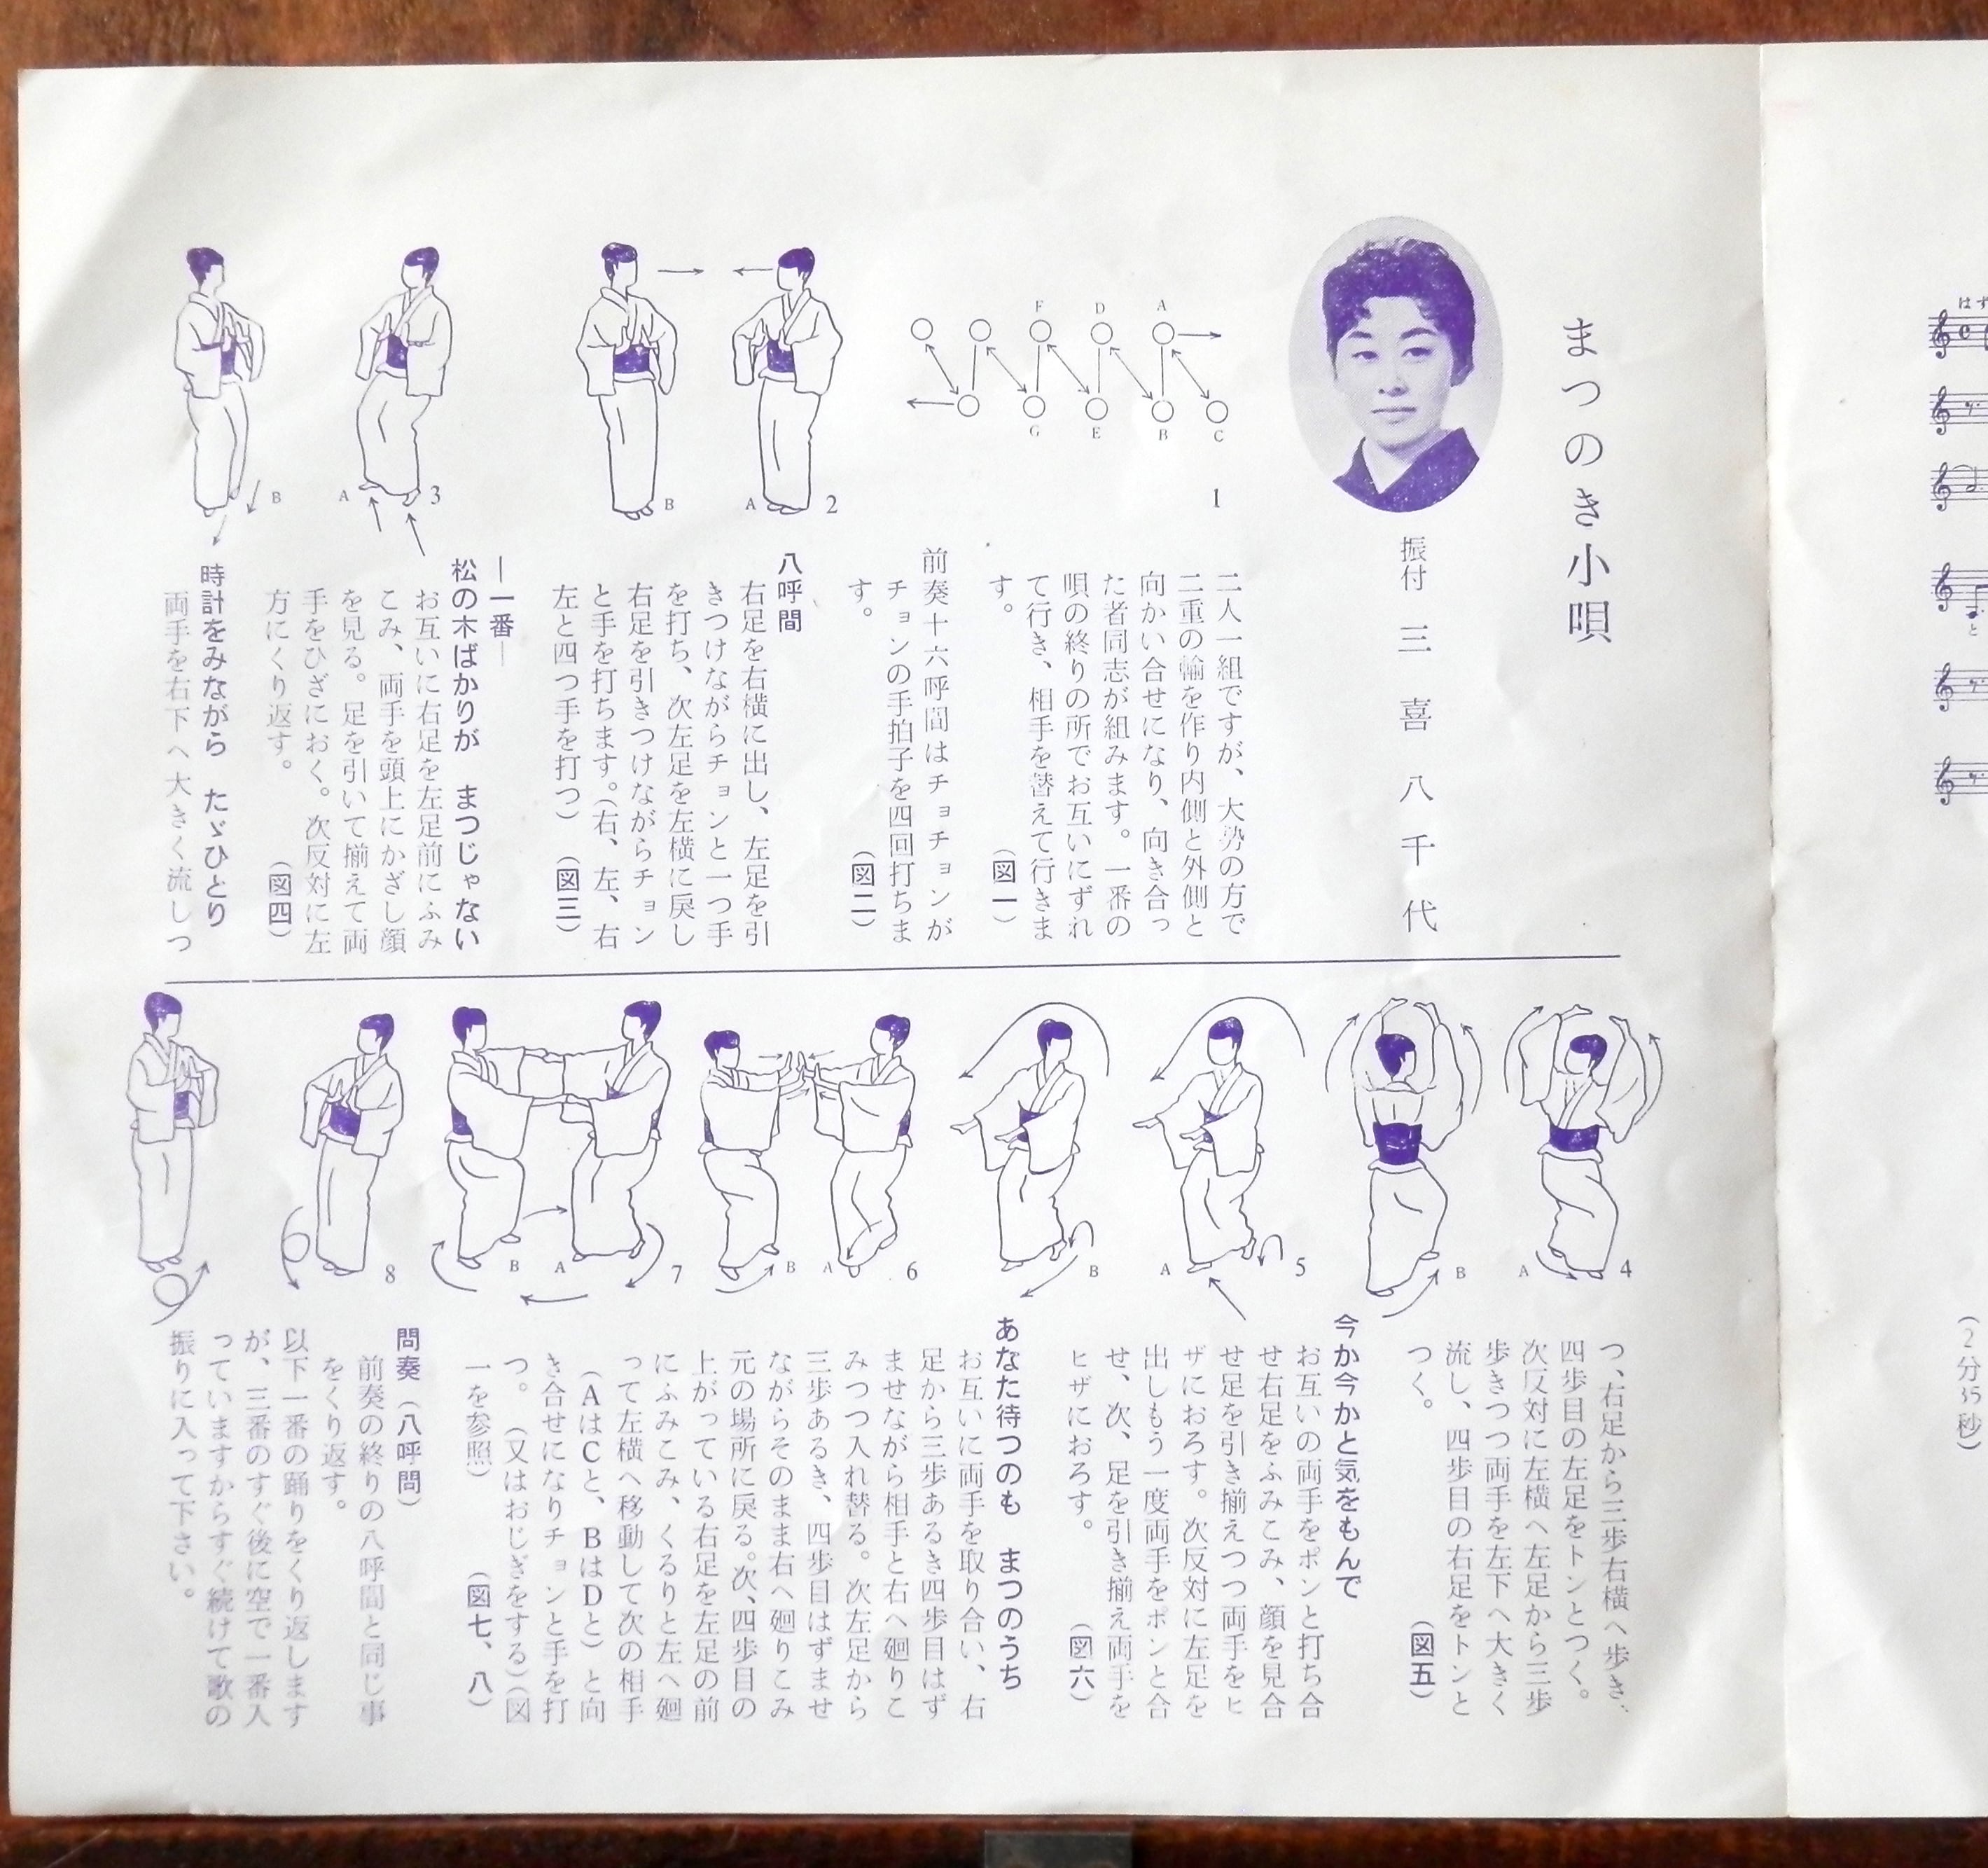 まつのき小唄
振付 三喜八千代
二人一組ですが、大勢の方で
二重の輪を作り内側と外側と
向かい合せになり、向き合っ
た者同志が組みます。一番の
唄の終りの所でお互いにずれ
て行き、相手を替えて行きま
す。 (図一)
前奏十六呼間はチョチョンが
チョンの手拍子を四回打ちま
す。 (図二)
八呼間
右足を右横に出し、左足を引
きつけながらチョンと一つ手
を打ち、次左足を左横に戻し
右足を引きつけながらチョン
と手を打ちます。(右、左、右
左と四つ手を打つ) (図三)
―一番―
松の木ばかりが まつじゃない
お互いに右足を左足前にふみ
こみ、両手を頭上にかざし顔
を見る。足を引いて揃えて両
手をひざにおく。次反対に左
方にくり返す。 (図四)
時計をみながら たゞひとり
両手を右下へ大きく流しつ
1
A
D
F
C
B
E
G
2
A
B
3
A
B
つ、右足から三歩右横へ歩き、
四歩目の左足をトンとつく。
次反対に左横へ左足から三歩
歩きつつ両手を左下へ大きく
流し、四歩目の右足をトンと
つく。 (図五)
今か今かと気をもんで
お互いの両手をポンと打ち合
せ右足をふみこみ、顔を見合
せ足を引き揃えつつ両手をヒ
ザにおろす。次反対に左足を
出しもう一度両手をポンと合
せ、次、足を引き揃え両手を
ヒザにおろす。 (図六)
あなた待つのも まつのうち
お互いに両手を取り合い、右
足から三歩あるき四歩目はず
ませながら相手と右へ廻りこ
みつつ入れ替る。次左足から
三歩あるき、四歩目はずませ
ながらそのまま右へ廻りこみ
元の場所に戻る。次、四歩目の
上がっている右足を左足の前
にふみこみ、くるりと左へ廻
って左横へ移動して次の相手
(AはCと、BはDと)と向
き合せになりチョンと手を打
つ。(又はおじぎをする)(図
一を参照) (図七、八)
間奏(八呼間)
前奏の終りの八呼間と同じ事
をくり返す。
以下一番の踊りをくり返します
が、三番のすぐ後に空で一番入
っていますからすぐ続けて歌の
振りに入って下さい。
4
A
B
5
A
B
6
A
B
7
A
B
8
はず
と
(2分35秒)